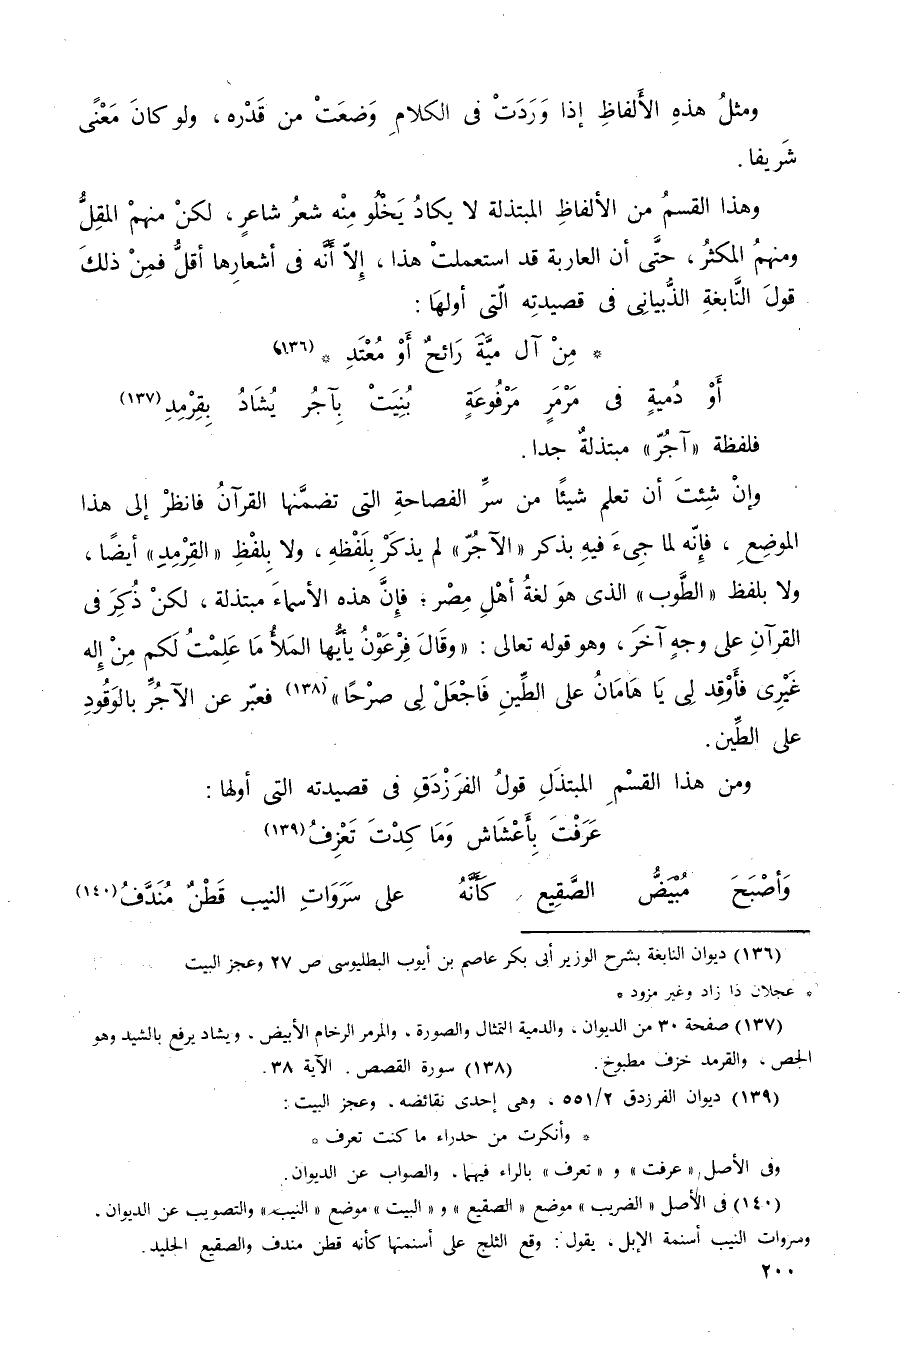 ومثلُ هذهِ الأَلفاظِ إذا وَرَدَتْ فى الكلامِ وَضعَتْ من قَدْره ، ولو كانَ مَعْنًى
شَريفا .
وهذا القسمُ من الألفاظِ المبتذلة لا يكادُ يَخْلُو مِنْه شعرُ شاعرٍ ، لكنْ منهمْ المقِلُّ
ومنهمُ المكثرُ ، حتَّى أن العاربة قد استعملتْ هذا ، إلاّ أَنَّه فى أشعارِها أقلُّ فمِنْ ذلكَ
قولَ النَّابغةِ الذُّبيانِى فى قصيدتِه الّتى أولهَا :
* مِنْ آل ميَّةَ رَائحٌ أَوْ مُعْتَدِ * (١٣٦)
أَوْ دُميةٍ فى مَرْمَرٍ مَرْفُوعَةٍ بُنِيَتْ بِآجُر يُشَادُ بِقِرْمِدِ (١٣٧)
فلفظة «آجُرّ» مبتذلةٌ جدا .
وإنْ شِئتَ أن تعلم شيئًا من سرِّ الفصاحةِ التى تضمَّنها القرآنُ فانظرْ إلى هذا
الموضِعِ ، فإِنّه لما جِىءَ فيهِ بذكر «الآجُرّ» لم يذكرْ بِلَفْظهِ ، ولا بِلفْظِ «القِرْمِدِ» أيضًا ،
ولا بلفظ «الطُّوب» الذى هوَ لغةُ أهْلِ مِصْر ؛ فإِنَّ هذه الأسماءَ مبتذلة ، لكنْ ذُكِرَ فى
القرآنِ على وجهٍ آخرَ ، وهو قوله تعالى : «وقَالَ فِرْعَوْنُ يأيُّها المَلأُ مَا عَلِمْتُ لَكم مِنْ إله
غَيْرِى فأَوْقِد لِى يَا هَامَانُ على الطِّينِ فَاجْعَلْ لِى صرْحًا» (١٣٨) فعبّر عن الآجُرِّ بالوَقُودِ
على الطِّين .
ومن هذا القسْمِ المبتذَلِ قولُ الفرَزْدَقِ فى قصيدته التى أولها :
عَرَفْتَ بِأَعْشَاش وَمَا كِدْتَ تَعْزِفُ (١٣٩)
وَأصْبَحَ مُبْيَضُّ الصَّقِيعِ كَأَنَّهُ على سَرَوَاتِ النيب قَطْنٌ مُنَدَّفُ (١٤٠)
(١٣٦) ديوان النابغة بشرح الوزير أبى بكر عاصم بن أيوب البطليوسى ص ٢٧ وعجز البيت
* عجلان ذا زاد وغير مزود *
(١٣٧) صفحة ٣٠ من الديوان ، والدمية التمثال والصورة ، والمرمر الرخام الأبيض ، ويشاد يرفع بالشيد وهو
الجص ، والقرمد خزف مطبوخ . (١٣٨) سورة القصص . الآية ٣٨ .
(١٣٩) ديوان الفرزدق ٢/٥٥١ ، وهى إحدى نقائضه ، وعجز البيت :
* وأنكرت من حدراء ما كنت تعرف *
وفى الأصل «عرفت» و «تعرف» بالراء فيهما ، والصواب عن الديوان .
(١٤٠) فى الأصل «الضريب» موضع «الصقيع» و «البيت» موضع «النيب» والتصويب عن الديوان .
وسروات النيب أسنمة الإبل ، يقول : وقع الثلج على أسنمتها كأنه قطن مندف والصقيع الجليد .
٢٠٠